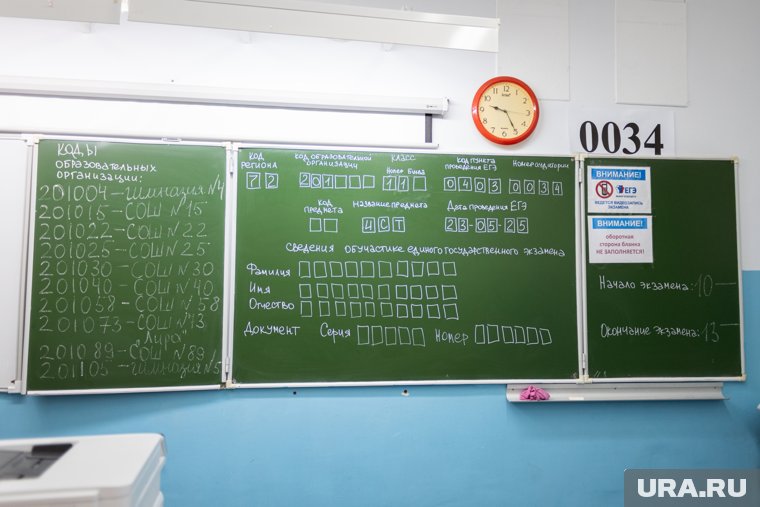 КОДЫ
ОБРАЗОВАТЕЛЬНЫХ
ОРГАНИЗАЦИИ:
201004-ГИМНАЗИЯ №4
201015-СОШ №15
201022-СОШ №22
201025-СОШ №25
201030-СОШ №30
201040-СОШ №40
201058-СОШ №58
201073-СОШ №73
"Лира"
201089-СОШ №89
201105-ГИМНАЗИЯ №5
КОД РЕГИОНА
72
КОД ОБРАЗОВАТЕЛЬНОЙ ОРГАНИЗАЦИИ
201
КЛАСС
Номер Буква
11
КОД ПУНКТА ПРОВЕДЕНИЯ ЕГЭ
0403
Номер аудитории
0034
КОД ПРЕДМЕТА
НАЗВАНИЕ ПРЕДМЕТА
ИСТ
ДАТА ПРОВЕДЕНИЯ ЕГЭ
23-05-25
СВЕДЕНИЯ ОБ УЧАСТНИКЕ ЕДИНОГО ГОСУДАРСТВЕННОГО ЭКЗАМЕНА
Фамилия
Имя
Отчество
Документ Серия Номер
0034
ВНИМАНИЕ!
ЕГЭ
ВЕДЕТСЯ ВИДЕОЗАПИСЬ
ЭКЗАМЕНА
ВНИМАНИЕ!
оборотная
сторона бланка
НЕ ЗАПОЛНЯЕТСЯ!
Начало экзамена: 10—
Окончание экзамена: 13—
URA.RU